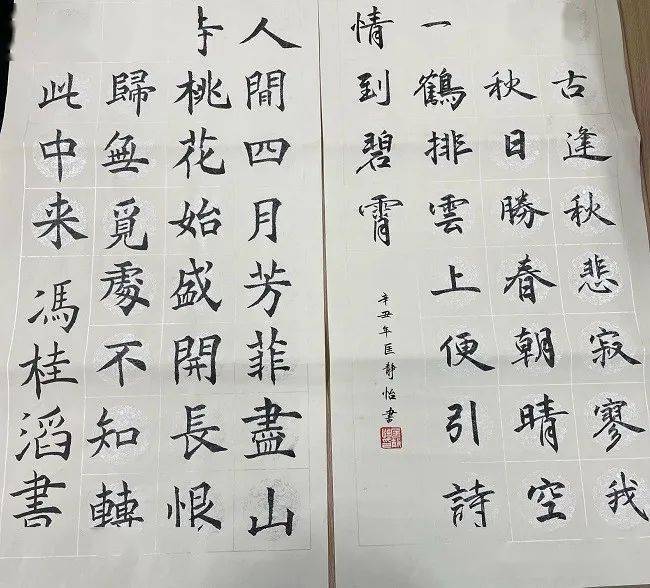 古逢秋悲寂寥我
秋日勝春朝晴空
一鶴排雲上便引詩
情到碧霄
辛丑年匡静怡書
人間四月芳菲盡山
桃花始盛開長恨
歸無覓處不知轉
此中来
馮桂滔書